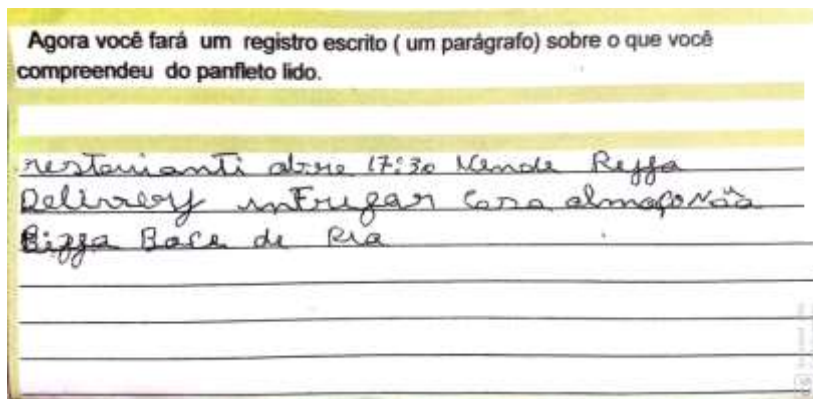 Agora você fará um registro escrito ( um parágrafo) sobre o que você
compreendeu do panfleto lido.
restauianti abre 17:30 Vende
Delivery intrugar Casa
Pizza Boca de